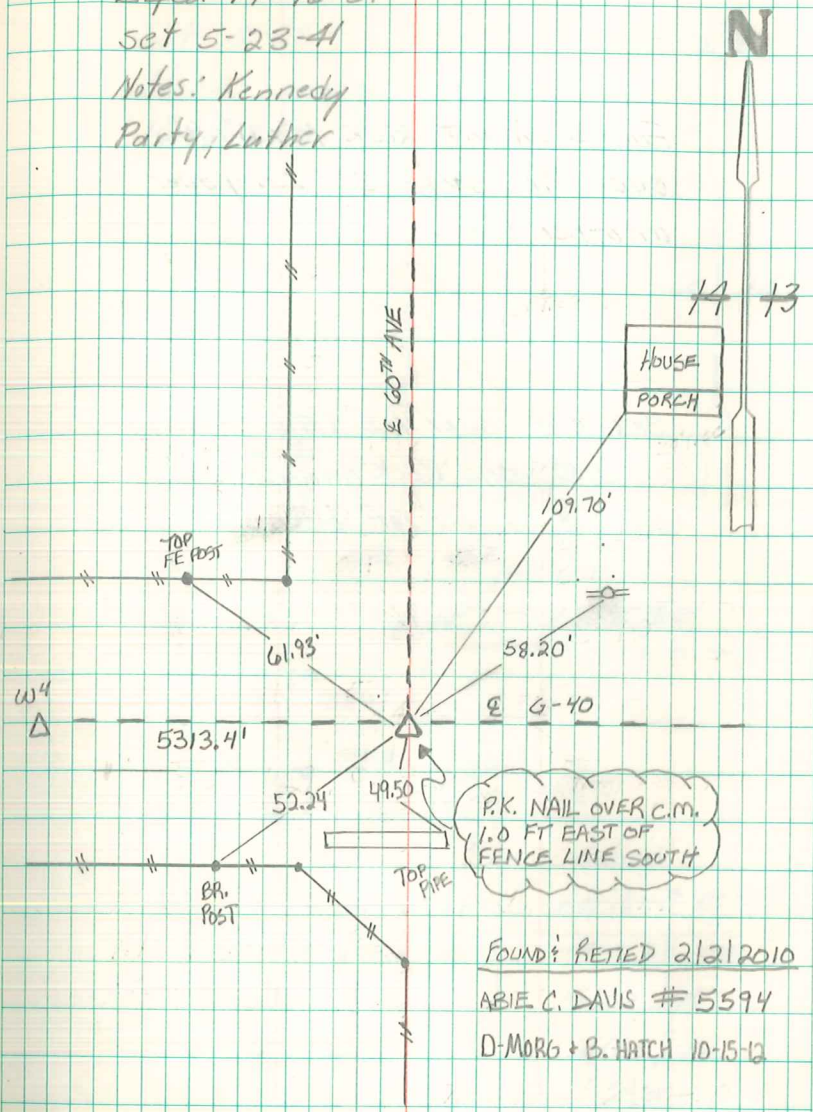 set 5-23-41
Notes: Kennedy
Party, Luther
N
14 13
HOUSE
PORCH
℄ 60TH AVE
109.70'
TOP
FE POST
61.93'
58.20'
W4
5313.4'
℄ G-40
52.24
49.50
P.K. NAIL OVER C.M.
1.0 FT EAST OF
FENCE LINE SOUTH
TOP
PIPE
BR.
POST
FOUND & RETIED 2/2/2010
ABIE C. DAVIS # 5594
D-MORG & B. HATCH 10-15-12